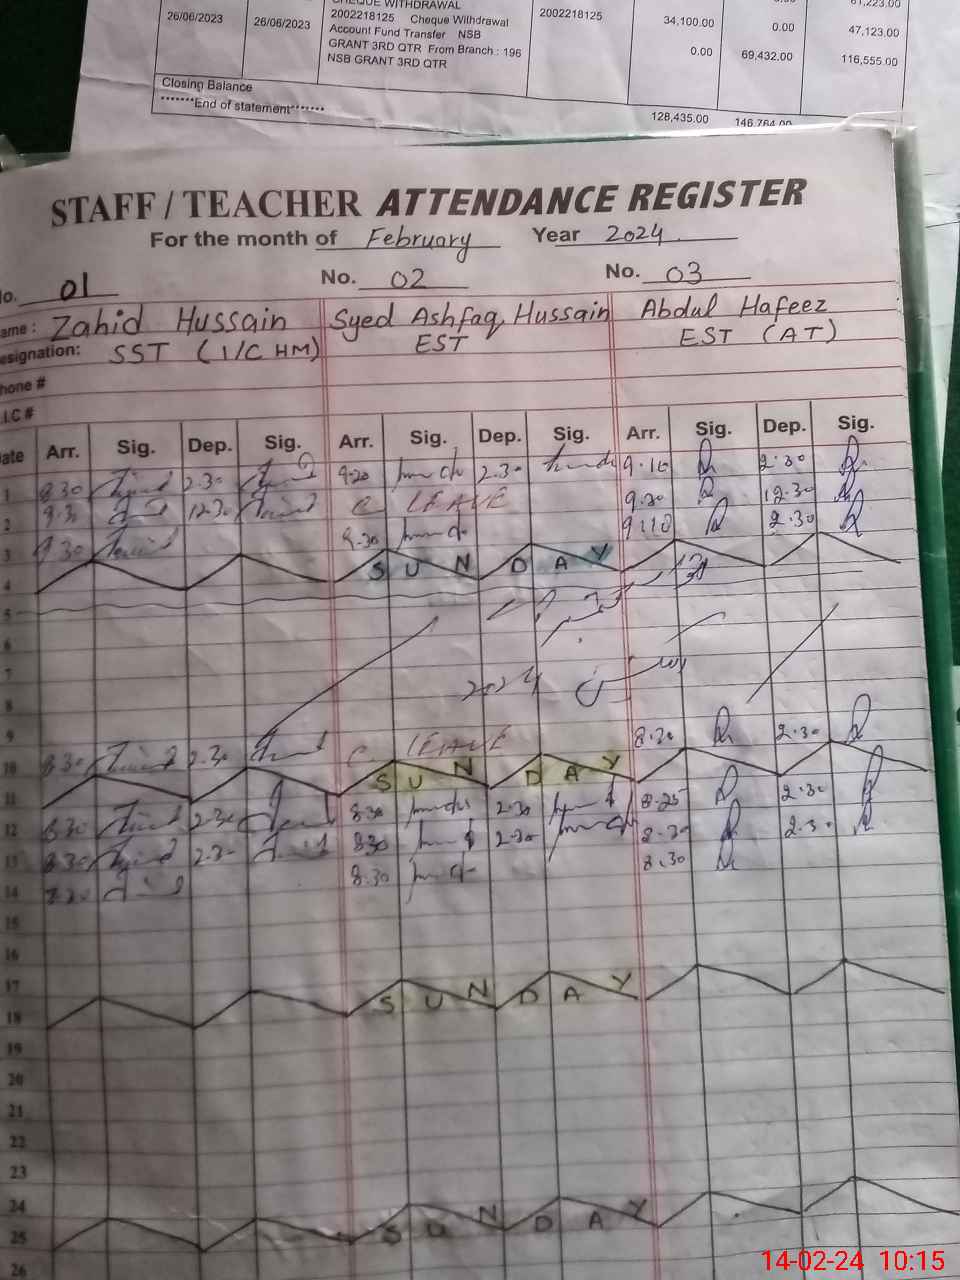 CHEQUE WITHDRAWAL 61,223.00
26/06/2023 26/06/2023 2002218125 Cheque Withdrawal 2002218125 34,100.00 0.00 47,123.00
Account Fund Transfer NSB
GRANT 3RD QTR From Branch : 196 0.00 69,432.00 116,555.00
NSB GRANT 3RD QTR
Closing Balance
*******End of statement******* 128,435.00 146,764.00
STAFF / TEACHER ATTENDANCE REGISTER
For the month of February Year 2024
No. 01 No. 02 No. 03
ame : Zahid Hussain Syed Ashfaq Hussain Abdul Hafeez
esignation: SST (I/C HM) EST EST (AT)
hone #
.I.C #
ate Arr. Sig. Dep. Sig. Arr. Sig. Dep. Sig. Arr. Sig. Dep. Sig.
1 8.30 2.30 9.20 2.30 9.10 2.30
2 9.30 12.30 C. LEAVE 9.20 12.30
3 9.30 9.30 9.10 2.30
4 SUNDAY
5
6
7
8 2024
9
10 8.30 2.30 C. LEAVE 8.30 2.30
11 SUNDAY
12 8.30 2.30 8.30 2.30 8.25 2.30
13 8.30 2.30 8.30 2.30 8.30 2.30
14 8.30 8.30 8.30
15
16
17
18 SUNDAY
19
20
21
22
23
24
25 SUNDAY
26
14-02-24 10:15